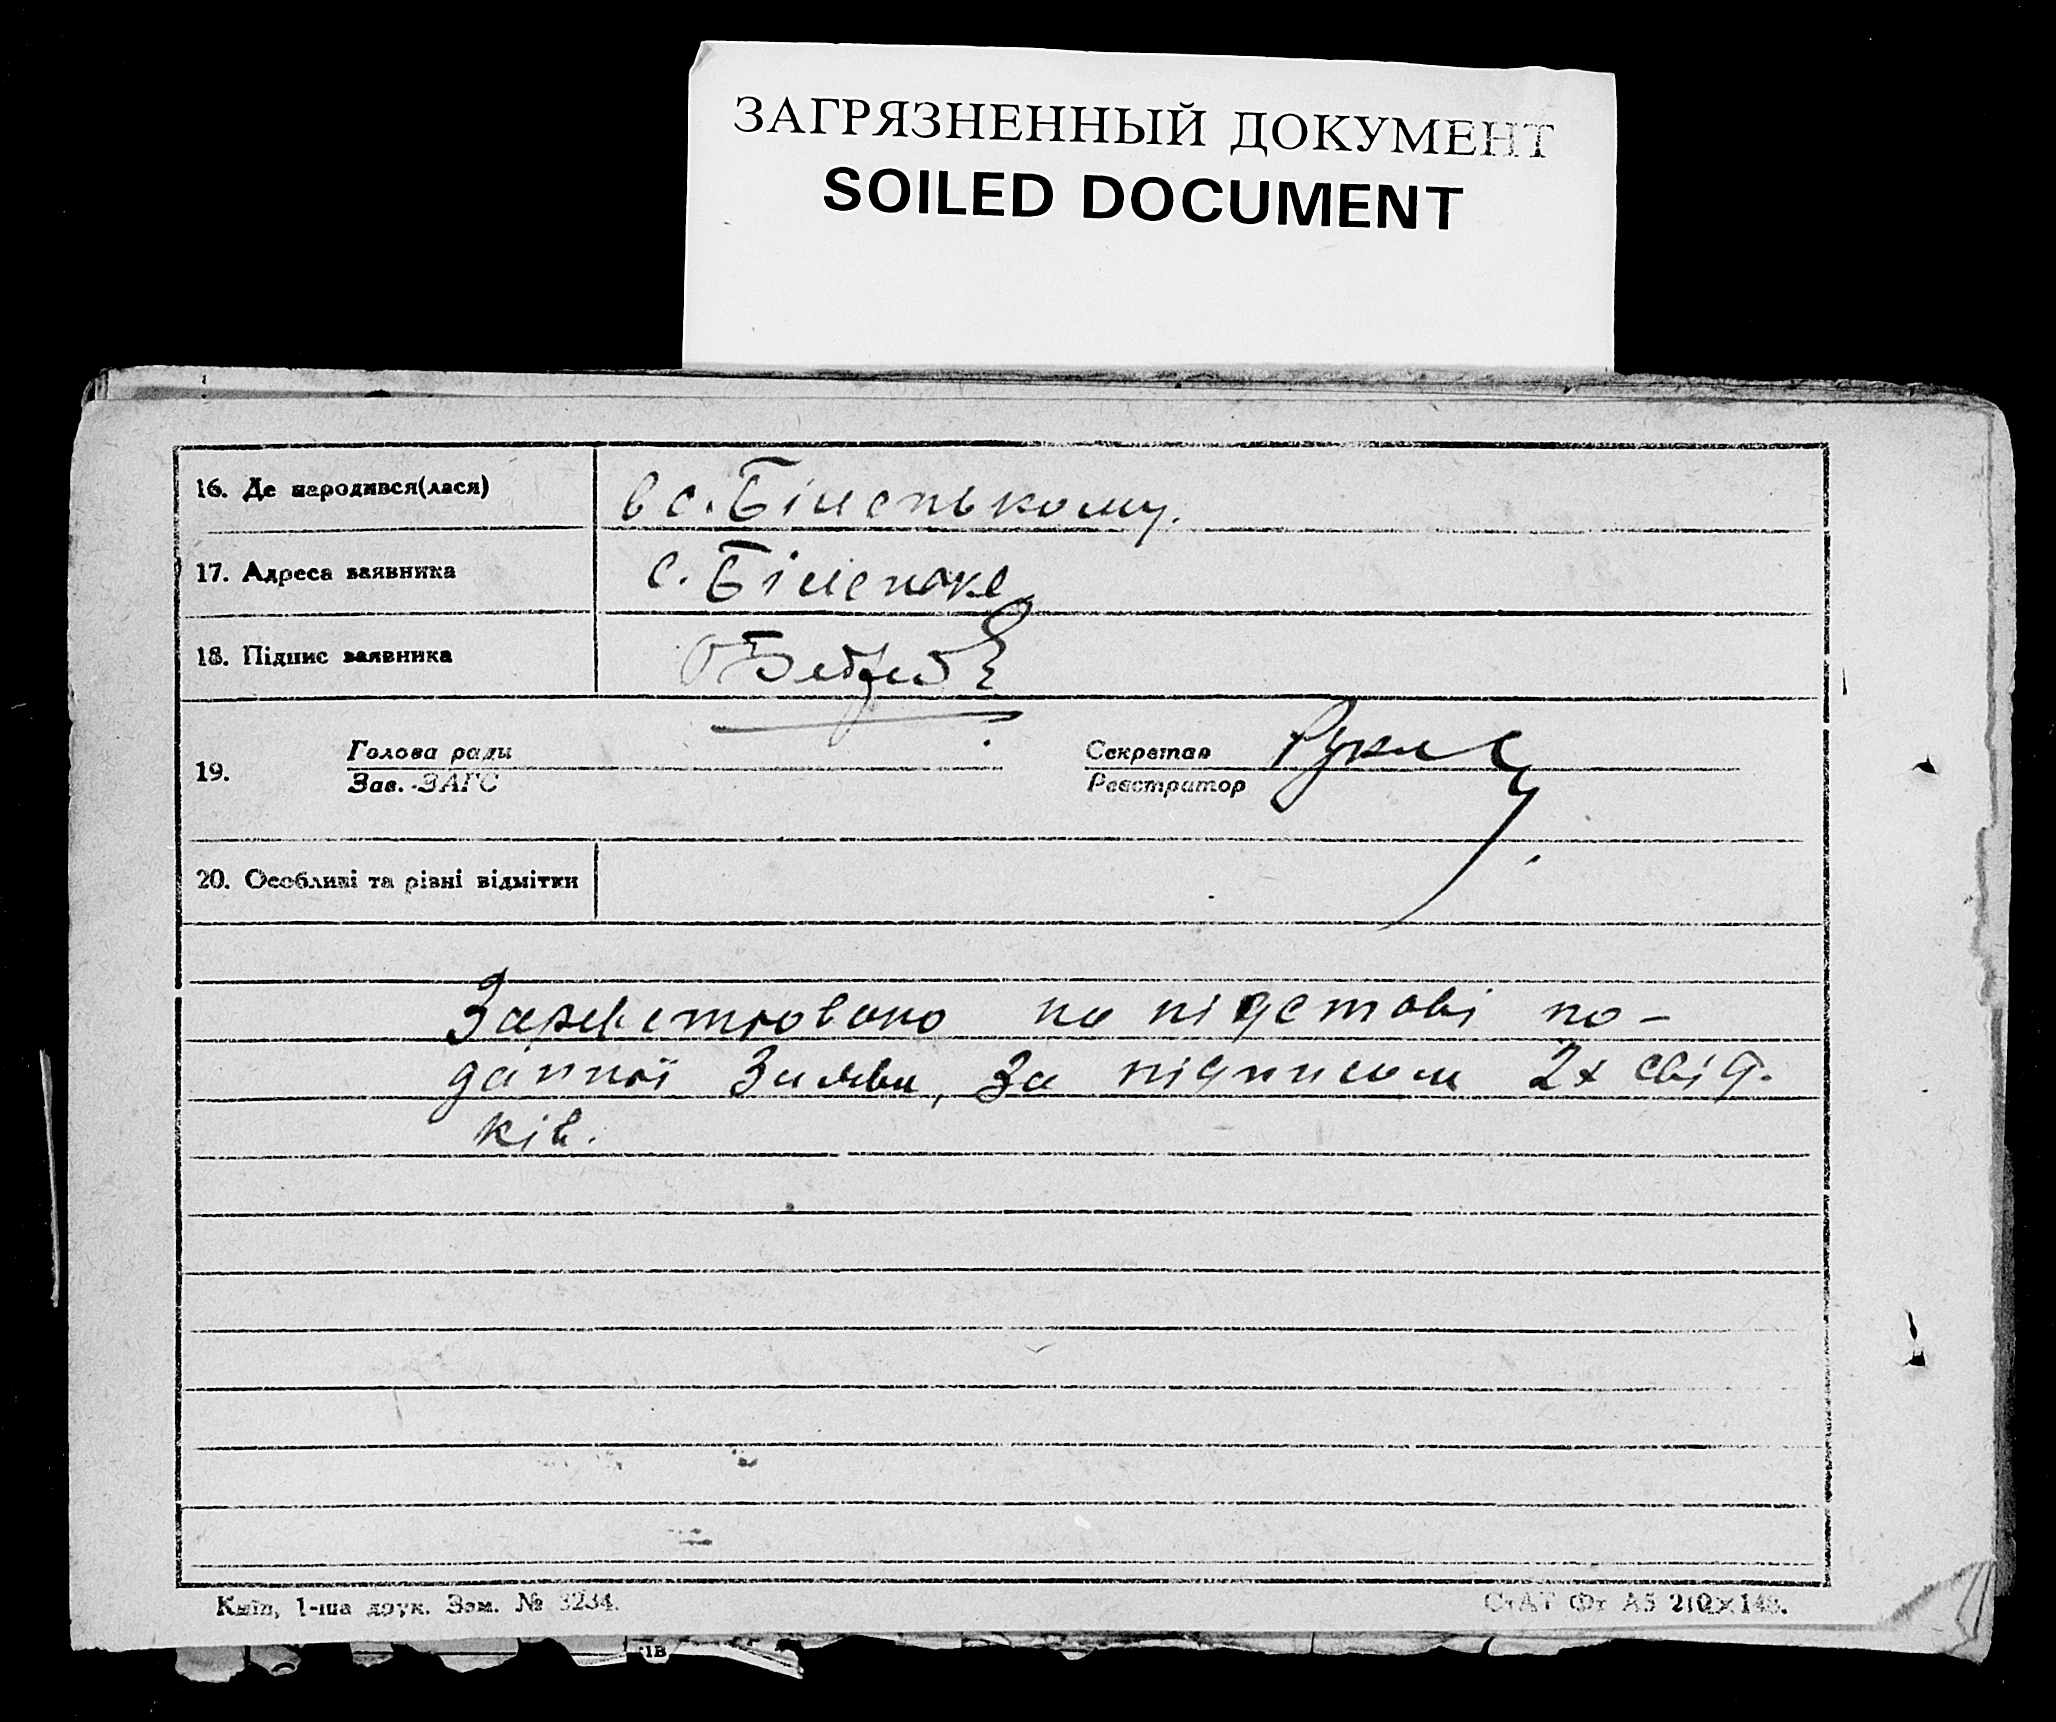 ЗАГРЯЗНЕННЫЙ ДОКУМЕНТ
SOILED DOCUMENT
16. Де народився(лася)
в с. Біленькому.
17. Адреса заявника
с. Біленьке
18. Підпис заявника
19.
Голова ради
Зав. ЗАГС
Секретар
Реєстратор
20. Особливі та різні відмітки
Зареєстровано на підставі по-
данної Заяви, за підписом 2х свід-
ків.
Київ, 1-ша друк. Зам. № 3234.
СтАТ Фт А5 210×148.